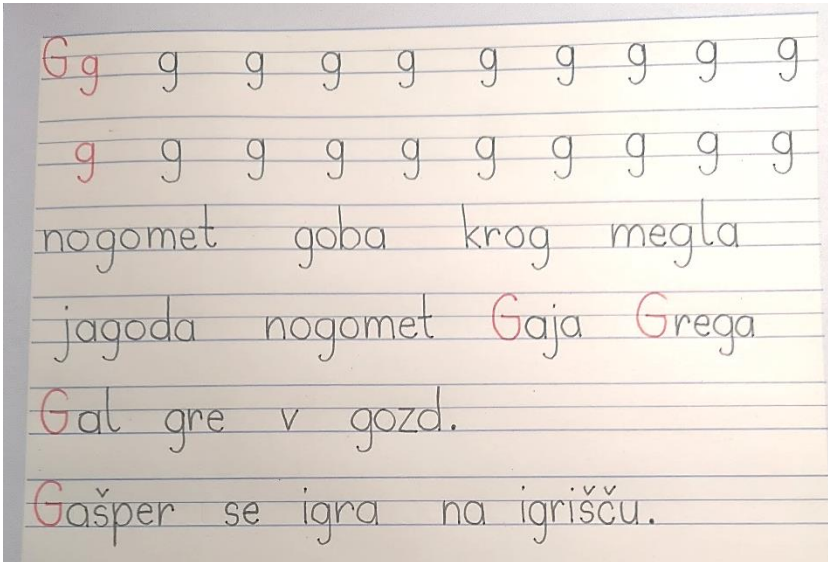 G g g g g g g g g g g
g g g g g g g g g g
nogomet goba krog megla
jagoda nogomet Gaja Grega
Gal gre v gozd.
Gašper se igra na igrišču.